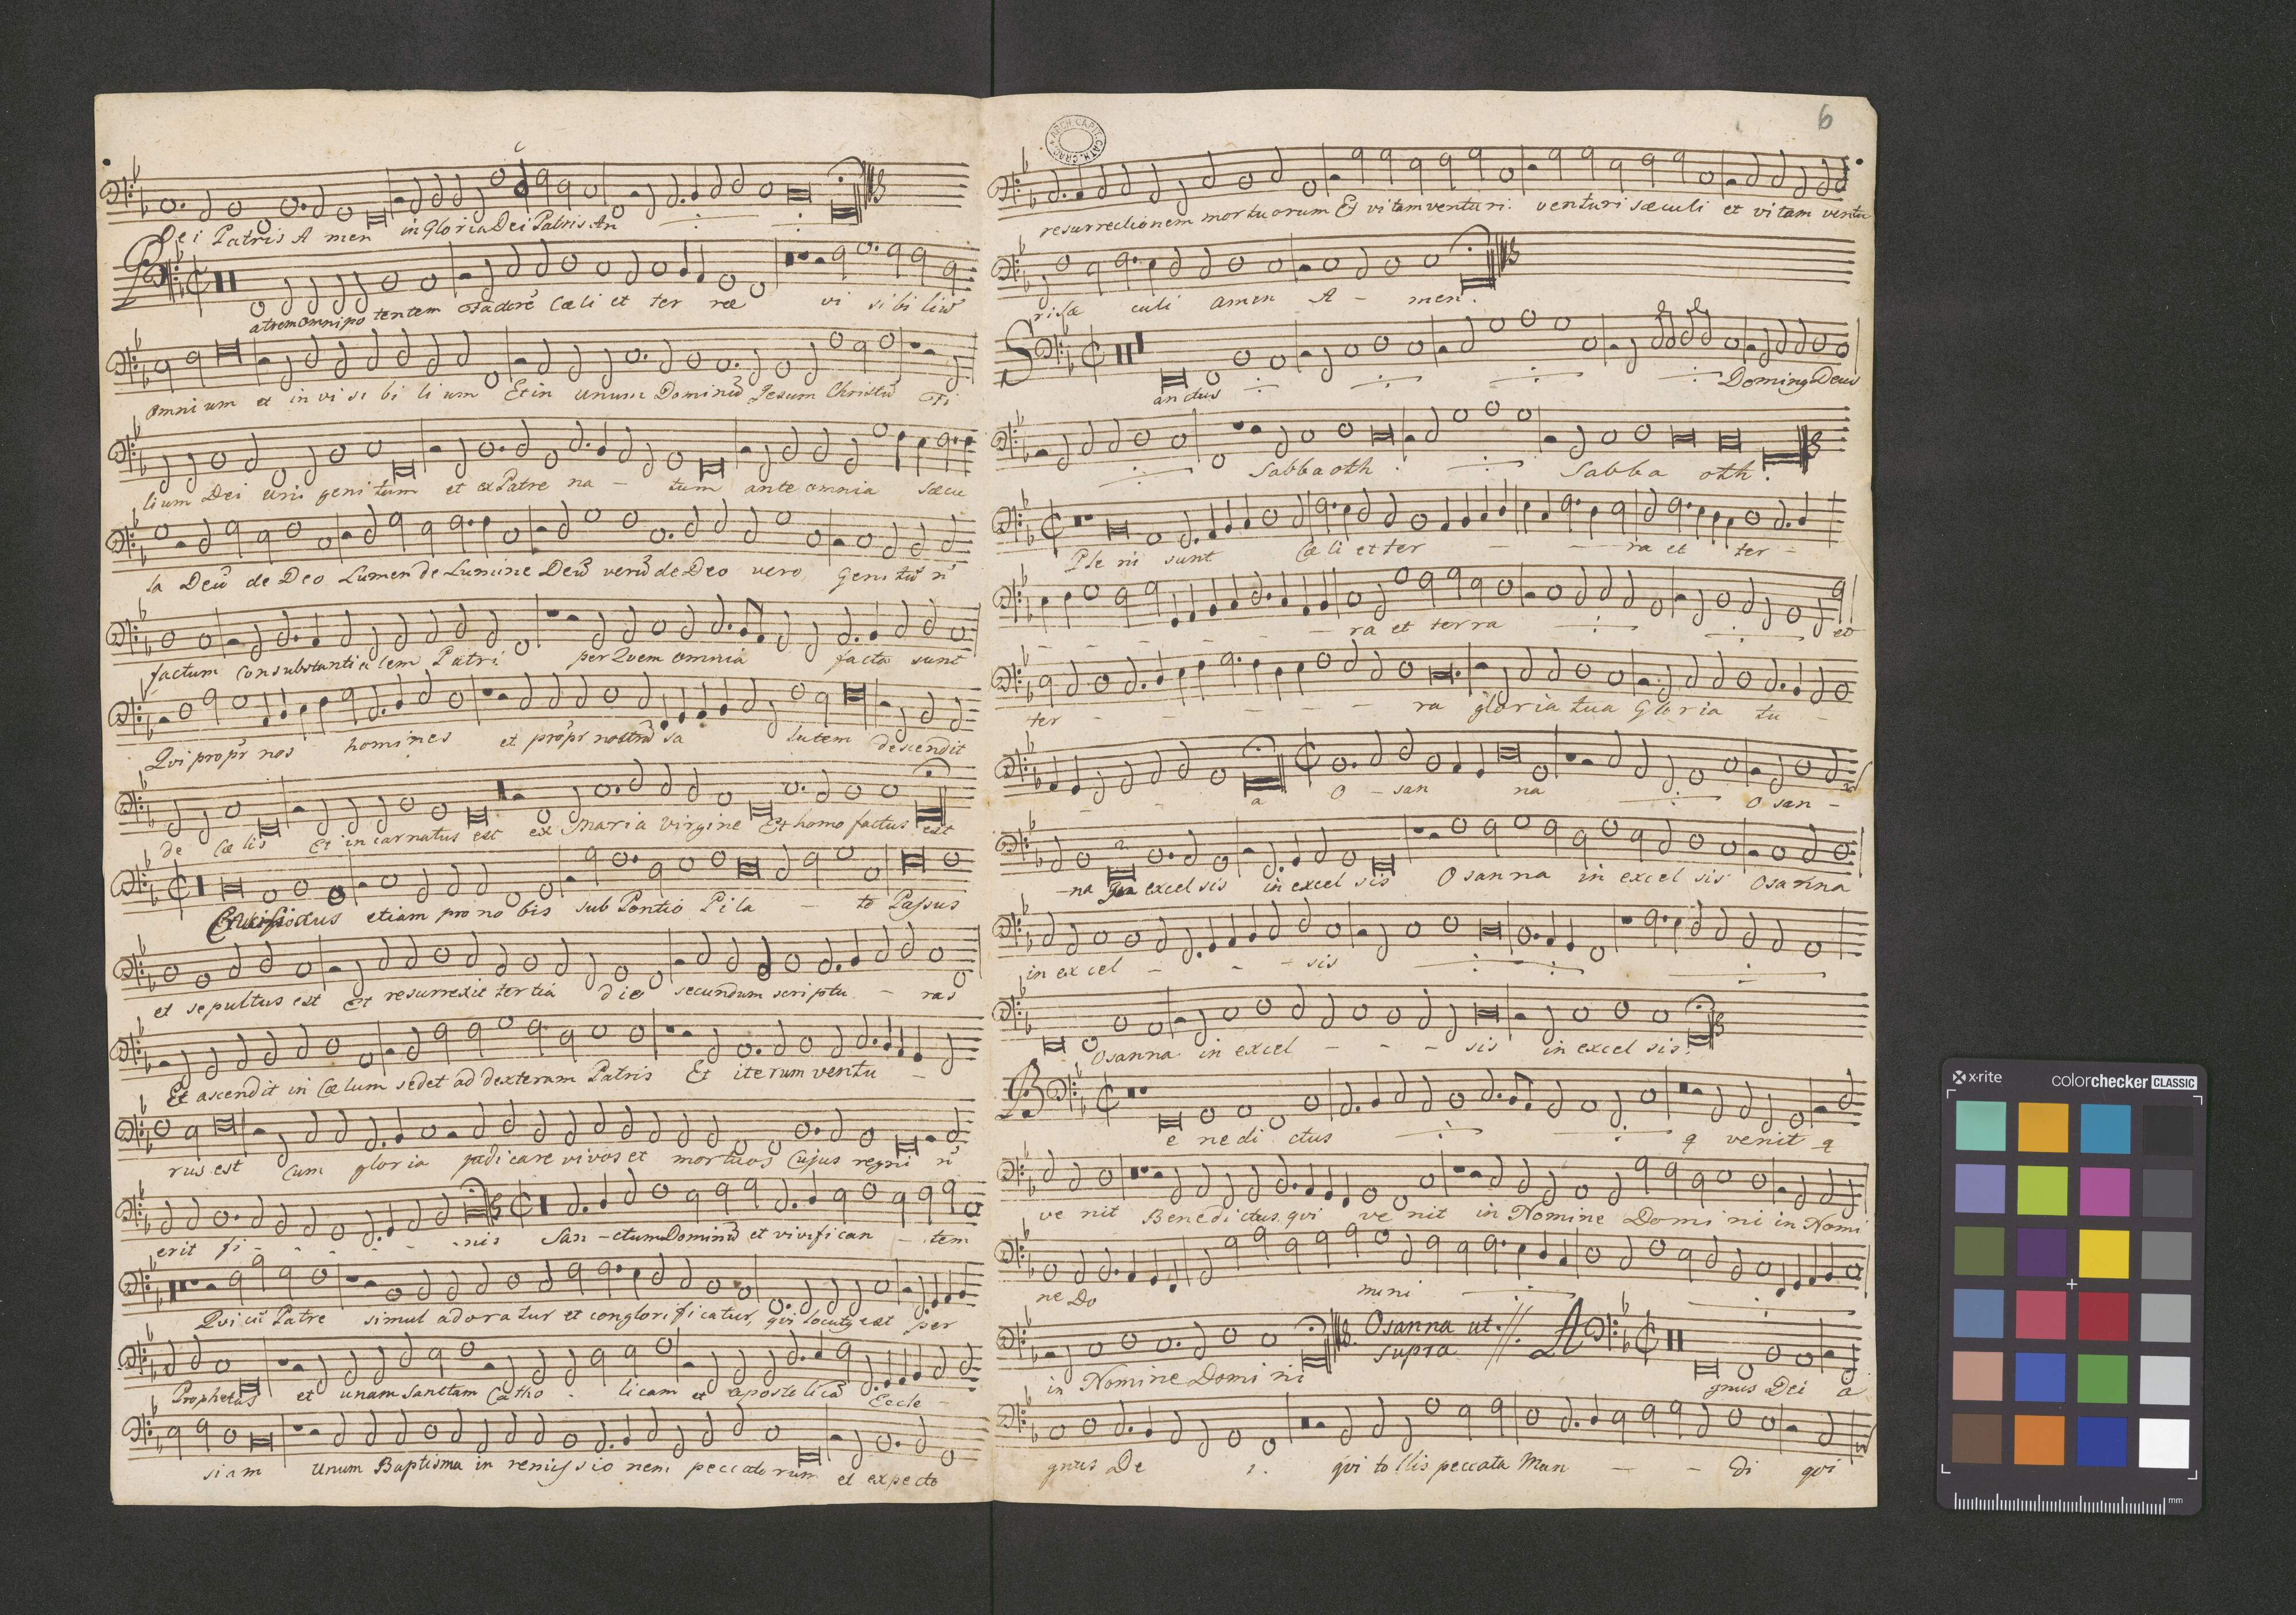 Dei Patris A men in Gloria Dei Patris An
atrem omnipo tentem Cæli et ter ræ vi si bi liū
omni um et in vi si bi li um Et in unum Dominū Jesum Christū Fi
lium Dei uni geni tum et ex Patre na - tum ante omnia sæcu
la Deū de Deo Lumen de Lumine Deū verū de Deo vero geni tū n̄
factum Consubstantia lem Patri per Quem omnia facta sunt
Qvi propr nos homines et propr nostrū sa lutem descendit
de Cæ lis Et in carnatus est ex Maria virgine Et homo factus est
Crucifixus etiam pro no bis sub Pontio Pi la - to Passus
et sepultus est Et resurrexit tertia die secundum scriptu - ras
Et ascendit in Cælum sedet ad dexteram Patris Et iterum ventu -
rus est Cum gloria judicare vivos et mortuos Cujus regni n̄
erit fi - - - - nis San - ctum Dominū et vivifi can - tem
Qvi cū Patre simul adoratur et conglorificatur, qvi locutg est per
Prophetas et unam Sanctam Catho - licam et aposto licā Eccle -
siam Unum Baptisma in remissio nem peccato rum et expecto
ARCH. CAPIT. CATH. CRAC.
6
resurrectionem mortuorum Et vitam venturi venturi sæculi et vitam ventu
ri sæ culi amen A - men.
S
anctus Doming Deus
Sabbaoth Sabba oth.
Ple ni sunt Cæ li et ter - - ra et ter -
- - - - - ra et terra et
ter - - - - - - ra gloria tua Gloria tu -
- - - a O - san na O san -
- na in excel sis in excel sis O sanna in excel sis Osanna
in ex cel - - - sis
Osanna in excel - - - sis in excel sis.
B
e ne di ctus q venit q
ve nit Benedictus qvi ve nit in Nomine Domi ni in Nomi
ne Do mini
in Nomine Domi ni Osanna ut supra A gnus Dei a
gnus De i. qvi to llis peccata Mun - - di qvi
x·rite colorchecker CLASSIC
mm